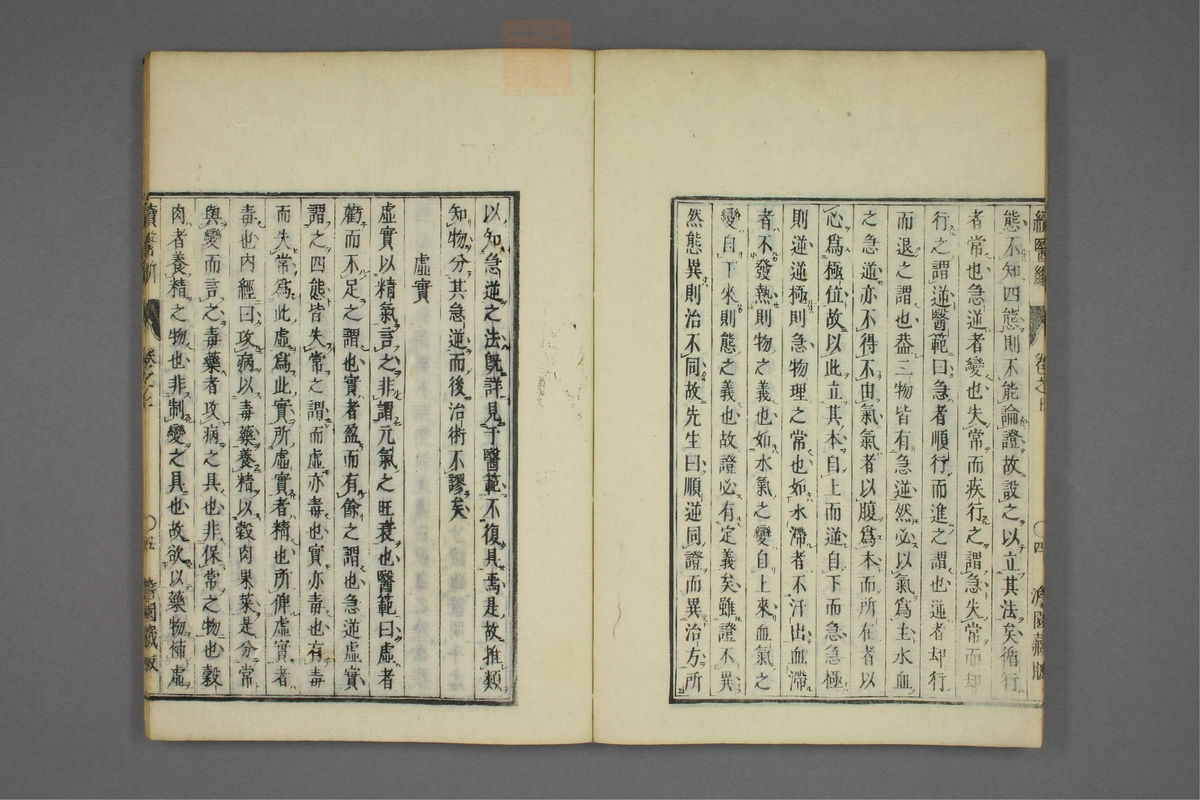 態不知四態則不能論證故設之以立其法矣循行
者常也急逆者變也失常而疾行之謂急失常而却
行之謂逆醫範曰急者順行而進之謂也逆者却行
而退之謂也蓋三物皆有急逆然必以氣爲主水血
之急逆亦不得不由氣氣者以腹爲本而所在者以
心爲極位故以此立其本自上而逆自下而急急極
則逆逆極則急物理之常也如水滯者不汗出血滯
者不發熱則物之義也如水氣之變自上來血氣之
變自下來則態之義也故證必有定義矣雖證不異
然態異則治不同故先生曰順逆同證而異治方所
以知急逆之法既詳見于醫範不復具焉是故推類
知物分其急逆而後治術不謬矣
虛實
虛實以精氣言之非謂元氣之旺衰也醫範曰虛者
虧而不足之謂也實者盈而有餘之謂也急逆虛實
謂之四態皆失常之謂而虛亦毒也實亦毒也有毒
而失常爲此虛爲此實所虛實者精也所俾虛實者
毒也內經曰攻病以毒藥養精以穀肉果菜是分常
與變而言之毒藥者攻病之具也非保常之物也穀
肉者養精之物也非制變之具也故欲以藥物補虛
續醫斷 卷之上 〇五